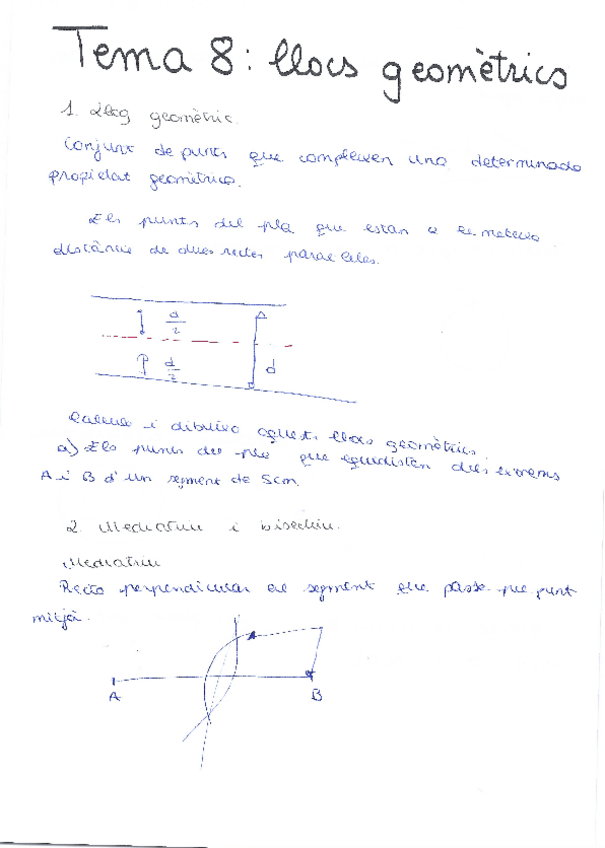 Tema 8: llocs geomètrics
1. Lloc geomètric.
Conjunt de punts que compleixen una determinada
propietat geomètrica.
Els punts del pla que estan a la mateixa
distància de dues rectes paral·leles.
d/2
d/2
d
Calcula i dibuixa aquests llocs geomètrics.
a) Els punts del pla que equidisten dels extrems
A i B d'un segment de 5cm.
2. Mediatriu i bisectriu.
Mediatriu
Recta perpendicular al segment que passa pel punt
mitjà.
A B